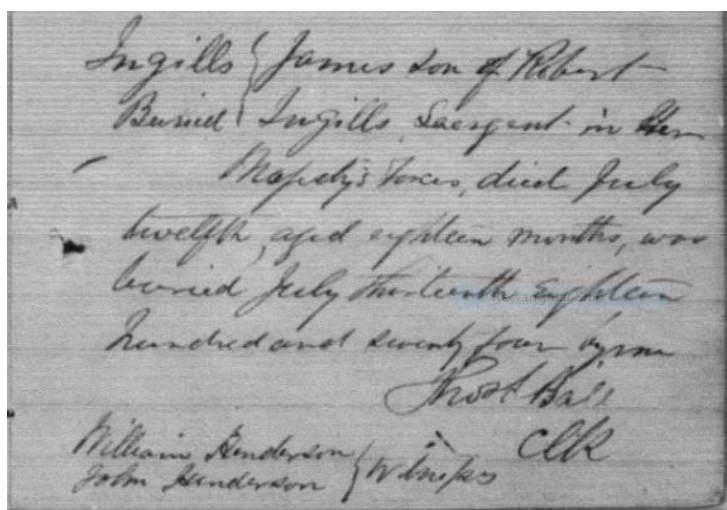 Ingills { James son of Robert
Buried { Ingills, Seargent in Her
Majesty's Forces, died July
twelfth, aged eighteen months, was
buried July thirteenth Eighteen
hundred and seventy four by me
Ball
Clk
William Henderson
John Henderson } Witness